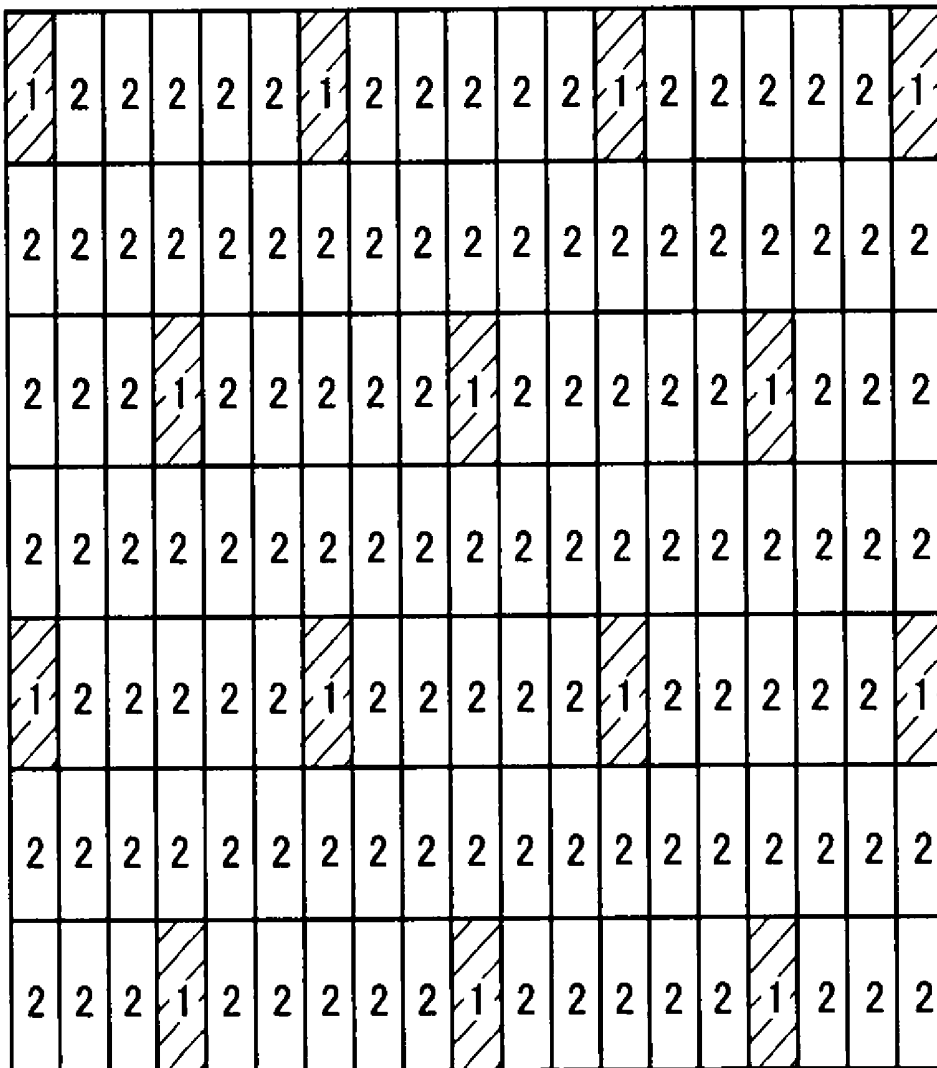 1 2 2 2 2 2 1 2 2 2 2 2 1 2 2 2 2 2 1
2 2 2 2 2 2 2 2 2 2 2 2 2 2 2 2 2 2 2
2 2 2 1 2 2 2 2 2 1 2 2 2 2 2 1 2 2 2
2 2 2 2 2 2 2 2 2 2 2 2 2 2 2 2 2 2 2
1 2 2 2 2 2 1 2 2 2 2 2 1 2 2 2 2 2 1
2 2 2 2 2 2 2 2 2 2 2 2 2 2 2 2 2 2 2
2 2 2 1 2 2 2 2 2 1 2 2 2 2 2 1 2 2 2